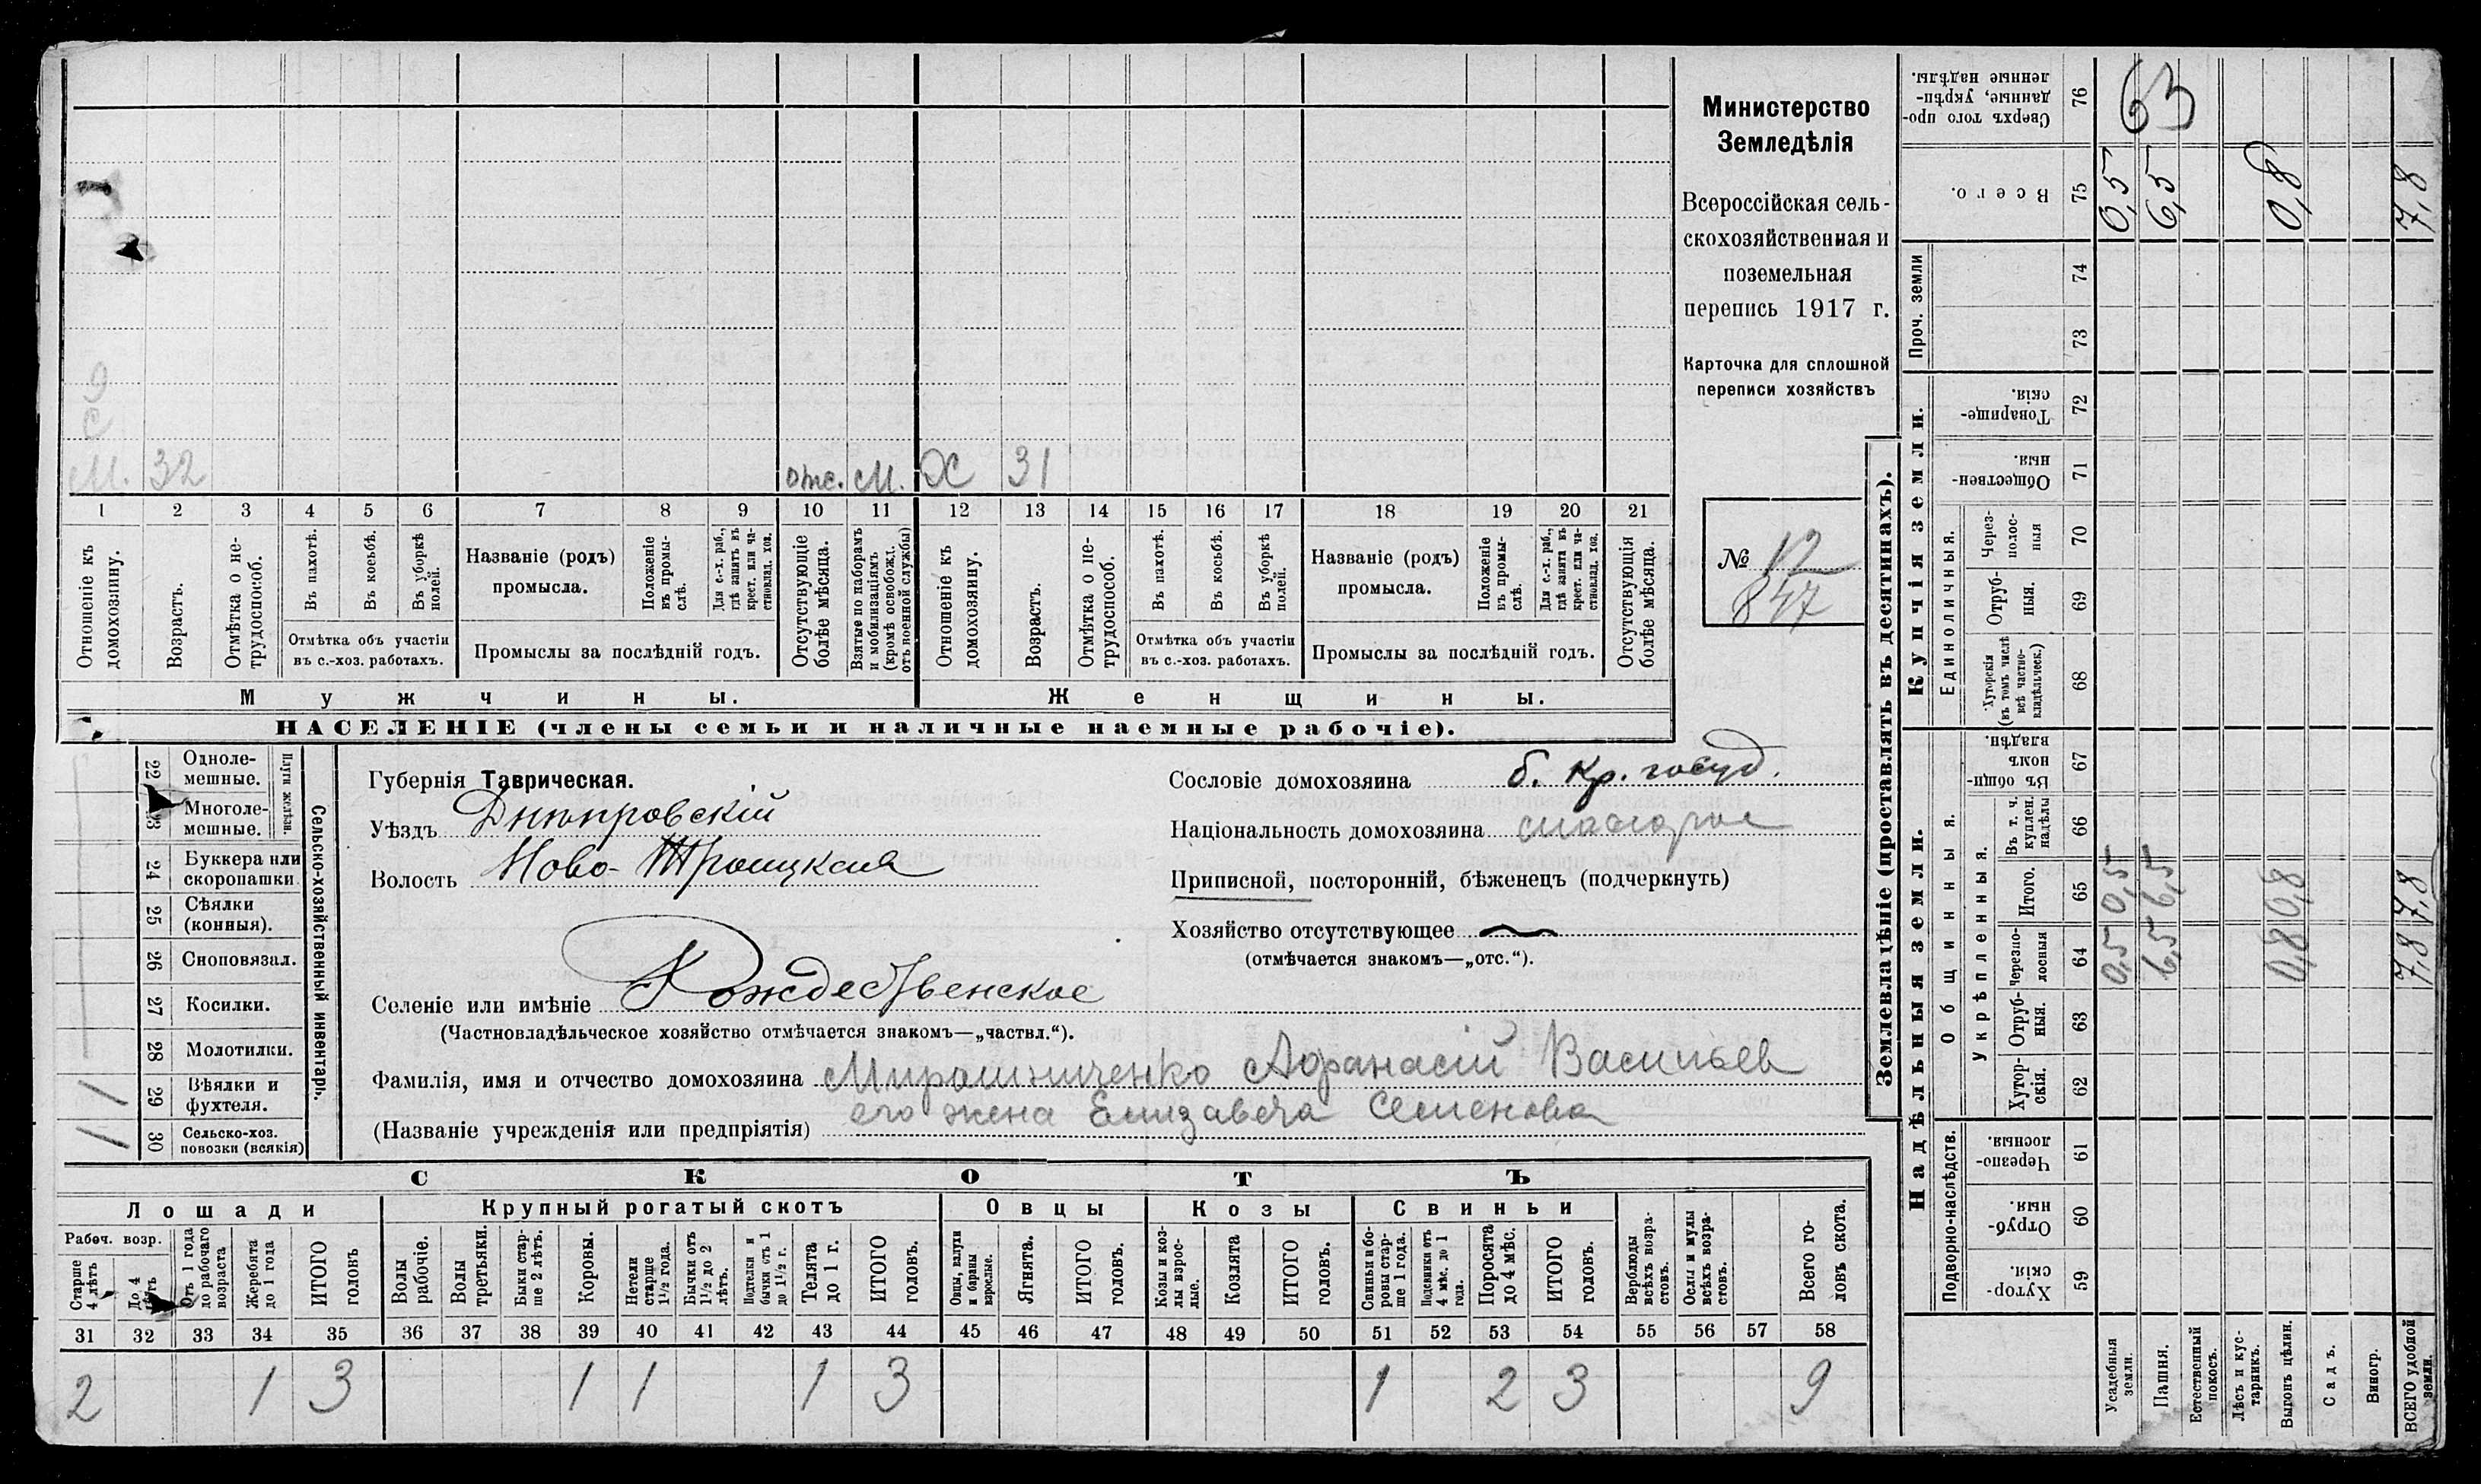 Министерство
Земледѣлія
Всероссійская сель-
скохозяйственная и
поземельная
перепись 1917 г.
Карточка для сплошной
переписи хозяйствъ
№ 12
847
9
с
М. 32 отс. М. Ж 31
1 2 3 4 5 6 7 8 9 10 11 12 13 14 15 16 17 18 19 20 21
Отношеніе къ домохозяину.
Возрастъ.
Отмѣтка о не-трудоспособ.
Въ пахотѣ.
Въ косьбѣ.
Въ уборкѣ полей.
Отмѣтка объ участіи
въ с.-хоз. работахъ.
Названіе (родъ)
промысла.
Положеніе въ промы-слѣ.
Для с.-х. раб., гдѣ занятъ въ крест. или ча-стновлад. хоз.
Промыслы за послѣдній годъ.
Отсутствующіе болѣе мѣсяца.
Взятые по наборамъ и мобилизаціямъ (кромѣ освобожд. отъ военной службы)
Отношеніе къ домохозяину.
Возрастъ.
Отмѣтка о не-трудоспособ.
Въ пахотѣ.
Въ косьбѣ.
Въ уборкѣ полей.
Отмѣтка объ участіи
въ с.-хоз. работахъ.
Названіе (родъ)
промысла.
Положеніе въ промы-слѣ.
Для с.-х. раб., гдѣ занята въ крест. или ча-стновлад. хоз.
Промыслы за послѣдній годъ.
Отсутствующія болѣе мѣсяца.
Мужчины. Женщины.
НАСЕЛЕНІЕ (члены семьи и наличные наемные рабочіе).
Сельско-хозяйственный инвентарь.
Плуги желѣзн.
22 Одноле-мешные.
23 Многоле-мешные.
24 Буккера или скоропашки
25 Сѣялки (конныя).
26 Сноповязал.
27 Косилки.
28 Молотилки.
29 Вѣялки и фухтеля. 1
30 Сельско-хоз. повозки (всякія) 1
Губернія Таврическая.
Уѣздъ Днѣпровскій
Волость Ново-Троицкая
Селеніе или имѣніе Рождественское
(Частновладѣльческое хозяйство отмѣчается знакомъ—„частвл.“).
Фамилія, имя и отчество домохозяина Мирошниченко Афанасій Васильев
его жена Елизавета Семенова
(Названіе учрежденія или предпріятія)
Сословіе домохозяина б. кр. госуд.
Національность домохозяина
Приписной, посторонній, бѣженецъ (подчеркнуть)
Хозяйство отсутствующее
(отмѣчается знакомъ—„отс.“).
СКОТЪ
Лошади Крупный рогатый скотъ Овцы Козы Свиньи
Рабоч. возр.
Старше 4 лѣтъ
До 4 лѣтъ
Отъ 1 года до рабочаго возраста
Жеребята до 1 года
ИТОГО головъ
Волы рабочіе.
Волы третьяки.
Быки стар-ше 2 лѣтъ.
Коровы.
Нетели старше 1½ года.
Бычки отъ 1½ до 2 лѣтъ.
Подтелки и бычки отъ 1 до 1½ г.
Телята до 1 г.
ИТОГО головъ.
Овцы, валухи и бараны взрослые.
Ягнята.
ИТОГО головъ.
Козы и коз-лы взрос-лые.
Козлята
ИТОГО головъ.
Свиньи и бо-ровы стар-ше 1 года.
Подсвинки отъ 4 мѣс. до 1 года.
Поросята до 4 мѣс.
ИТОГО головъ.
Верблюды всѣхъ возра-стовъ.
Ослы и мулы всѣхъ возра-стовъ.
Всего го-ловъ скота.
31 32 33 34 35 36 37 38 39 40 41 42 43 44 45 46 47 48 49 50 51 52 53 54 55 56 57 58
2 1 3 1 1 1 3 1 2 3 9
Землевладѣніе (проставлять въ десятинахъ).
Надѣльныя земли. Купчія земли. Проч. земли
Подворно-наслѣдств. Общинныя. Укрѣпленныя. Единоличныя.
59 Хутор-скія.
60 Отруб-ныя.
61 Черезпо-лосныя
62 Хутор-скія.
63 Отруб-ныя.
64 Черезпо-лосныя 0,5 6,5 0,8 7,8
65 Итого. 0,5 6,5 0,8 7,8
66 Въ т. ч. куплен. надѣлы
67 Въ общи-номъ владѣн.
68 Хуторскія (въ томъ числѣ всѣ частно-владѣльческ.)
69 Отруб-ныя.
70 Через-полос-ныя
71 Обществен-ныя.
72 Товарище-скія.
73
74
75 Всего. 0,5 6,5 0,8 7,8
76 Сверхъ того про-данные, укрѣп-ленные надѣлы. 63
Усадебныя земли.
Пашня.
Естественный покосъ.
Лѣсъ и кус-тарникъ.
Выгонъ цѣлин.
Садъ.
Виногр.
ВСЕГО удобной земли.